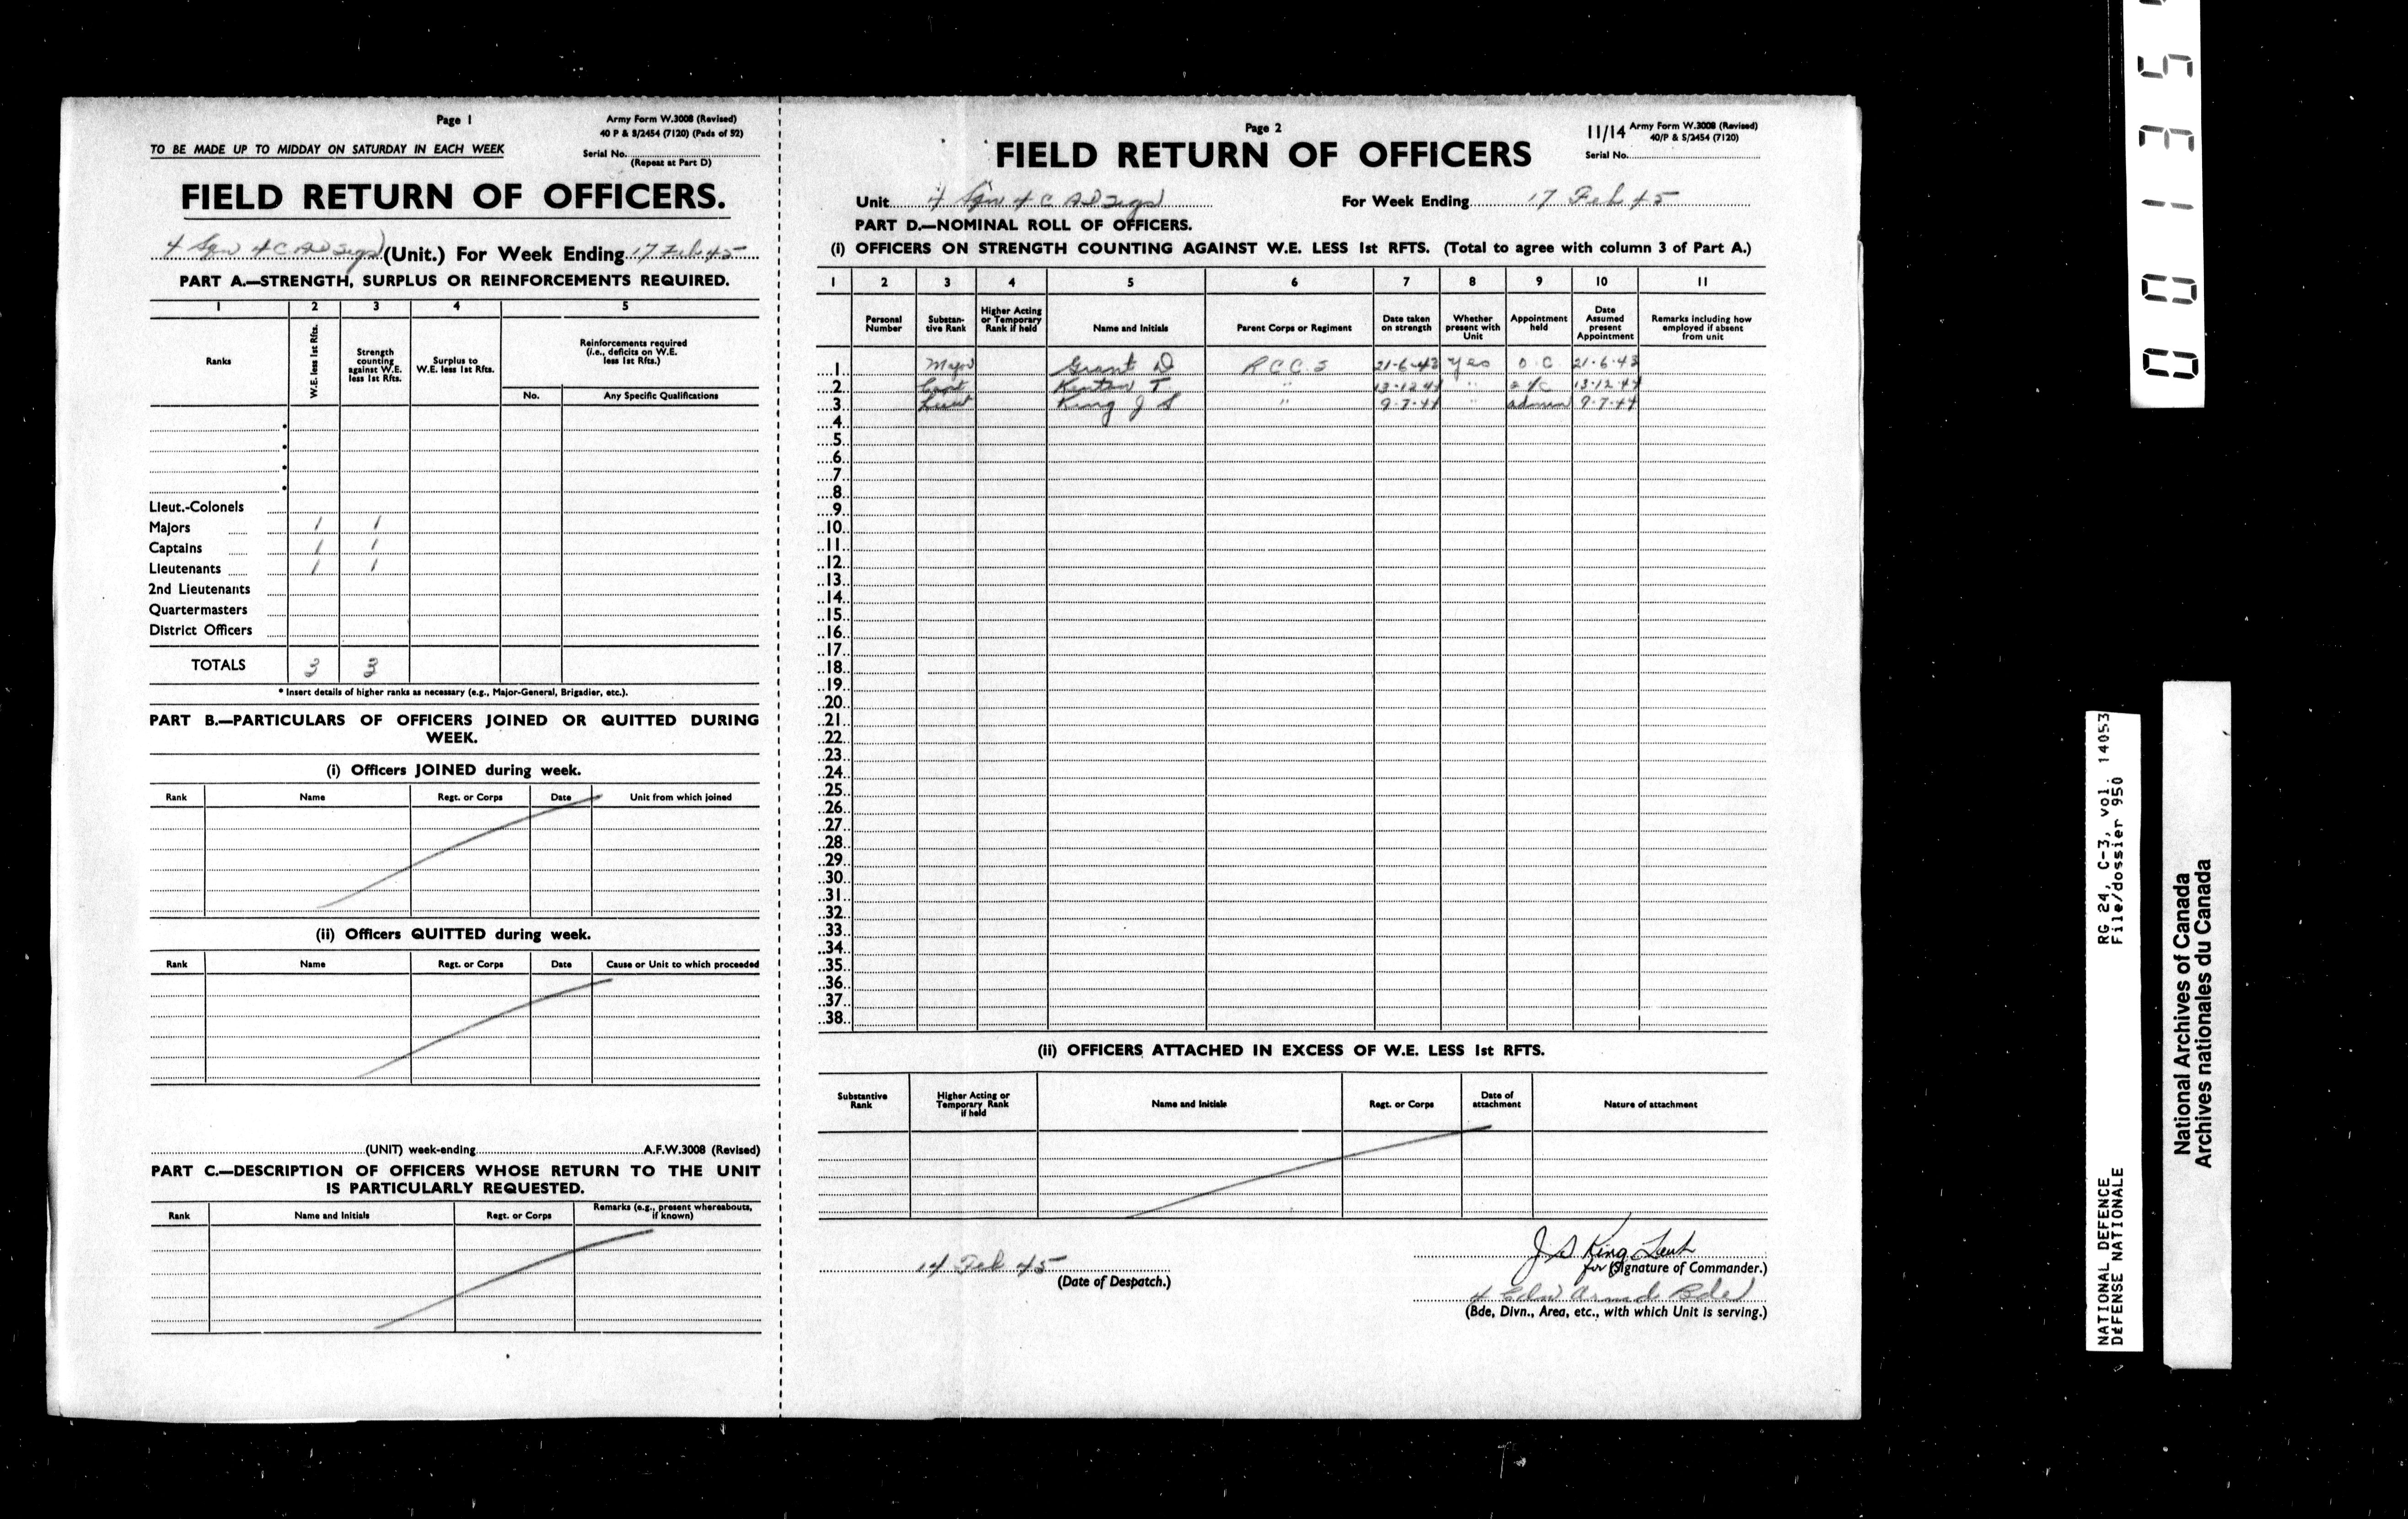 Page 1
Army Form W.3008 (Revised)
40 P & S/2454 (7120) (Pads of 52)
TO BE MADE UP TO MIDDAY ON SATURDAY IN EACH WEEK
Serial No.
(Repeat at Part D)
FIELD RETURN OF OFFICERS.
4 Sqn 4 C A D Sigs (Unit.) For Week Ending 17 Feb 45
PART A.—STRENGTH, SURPLUS OR REINFORCEMENTS REQUIRED.
1 2 3 4 5
Ranks
W.E. less 1st Rfts.
Strength counting against W.E. less 1st Rfts.
Surplus to W.E. less 1st Rfts.
Reinforcements required (i.e., deficits on W.E. less 1st Rfts.)
No. Any Specific Qualifications
Lieut.-Colonels
Majors 1 1
Captains 1 1
Lieutenants 1 1
2nd Lieutenants
Quartermasters
District Officers
TOTALS 3 3
* Insert details of higher ranks as necessary (e.g., Major-General, Brigadier, etc.).
PART B.—PARTICULARS OF OFFICERS JOINED OR QUITTED DURING
WEEK.
(i) Officers JOINED during week.
Rank Name Regt. or Corps Date Unit from which joined
(ii) Officers QUITTED during week.
Rank Name Regt. or Corps Date Cause or Unit to which proceeded
(UNIT) week-ending A.F.W.3008 (Revised)
PART C.—DESCRIPTION OF OFFICERS WHOSE RETURN TO THE UNIT
IS PARTICULARLY REQUESTED.
Rank Name and Initials Regt. or Corps Remarks (e.g., present whereabouts, if known)
Page 2
11/14 Army Form W.3008 (Revised)
40/P & S/2454 (7120)
Serial No.
FIELD RETURN OF OFFICERS
Unit 4 Sqn 4 C A D Sigs For Week Ending 17 Feb 45
PART D.—NOMINAL ROLL OF OFFICERS.
(i) OFFICERS ON STRENGTH COUNTING AGAINST W.E. LESS 1st RFTS. (Total to agree with column 3 of Part A.)
1 2 3 4 5 6 7 8 9 10 11
Personal Number
Substan-tive Rank
Higher Acting or Temporary Rank if held
Name and Initials
Parent Corps or Regiment
Date taken on strength
Whether present with Unit
Appointment held
Date Assumed present Appointment
Remarks including how employed if absent from unit
1 Major Grant D R C C S 21-6-43 Yes O C 21-6-43
2 Capt T " 13-12-44 " 2 i/c 13-12-44
3 Lieut King J S " 9-7-44 " admin 9-7-44
4
5
6
7
8
9
10
11
12
13
14
15
16
17
18
19
20
21
22
23
24
25
26
27
28
29
30
31
32
33
34
35
36
37
38
(ii) OFFICERS ATTACHED IN EXCESS OF W.E. LESS 1st RFTS.
Substantive Rank
Higher Acting or Temporary Rank if held
Name and Initials
Regt. or Corps
Date of attachment
Nature of attachment
14 Feb 45
(Date of Despatch.)
J S King Lieut
for (Signature of Commander.)
4 Cdn Armd Bde
(Bde, Divn., Area, etc., with which Unit is serving.)
00135
NATIONAL DEFENCE RG 24, C-3, vol. 14053
DÉFENSE NATIONALE File/dossier 950
National Archives of Canada
Archives nationales du Canada